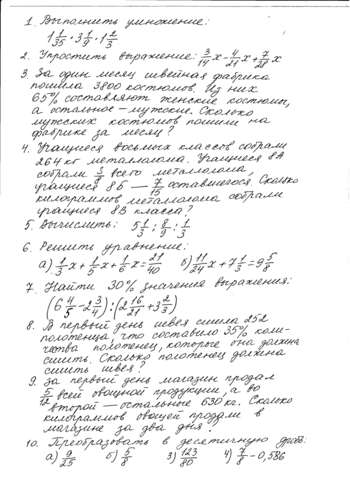 1. Выполнить умножение:
1 1/35 · 3 1/9 · 1 2/3
2. Упростить выражение: 3/14 x - 4/21 x + 7/28 x
3. За один месяц швейная фабрика
пошила 3800 костюмов. Из них
65% составляют женские костюмы,
а остальное - мужские. Сколько
мужских костюмов пошили на
фабрике за месяц?
4. Учащиеся восьмых классов собрали
264 кг металлолома. Учащиеся 8А
собрали всего металлолома,
учащиеся 8Б — 7/15 оставшегося. Сколько
килограммов металлолома собрали
учащиеся 8В класса?
5. Вычислить: 5 1/3 : 8/9 : 1/3
6. Решить уравнение:
а) 1/3 x + 1/5 x + 1/6 x = 21/40 б) 11/24 x + 7 1/3 = 9 5/8
7. Найти 30% значения выражения:
(6 4/5 - 2 3/4) : (2 16/21 + 3 2/3)
8. В первый день швея сшила 252
полотенца, что составило 35% коли-
чества полотенец, которые она должна
сшить. Сколько полотенец должна
сшить швея?
9. За первый день магазин продал
5/12 всей овощной продукции, а во
второй — остальные 630 кг. Сколько
килограммов овощей продали в
магазине за два дня?
10. Преобразовать в десятичную дробь:
а) 9/25 б) 5/8 3) 123/80 4) 7/8 - 0,586